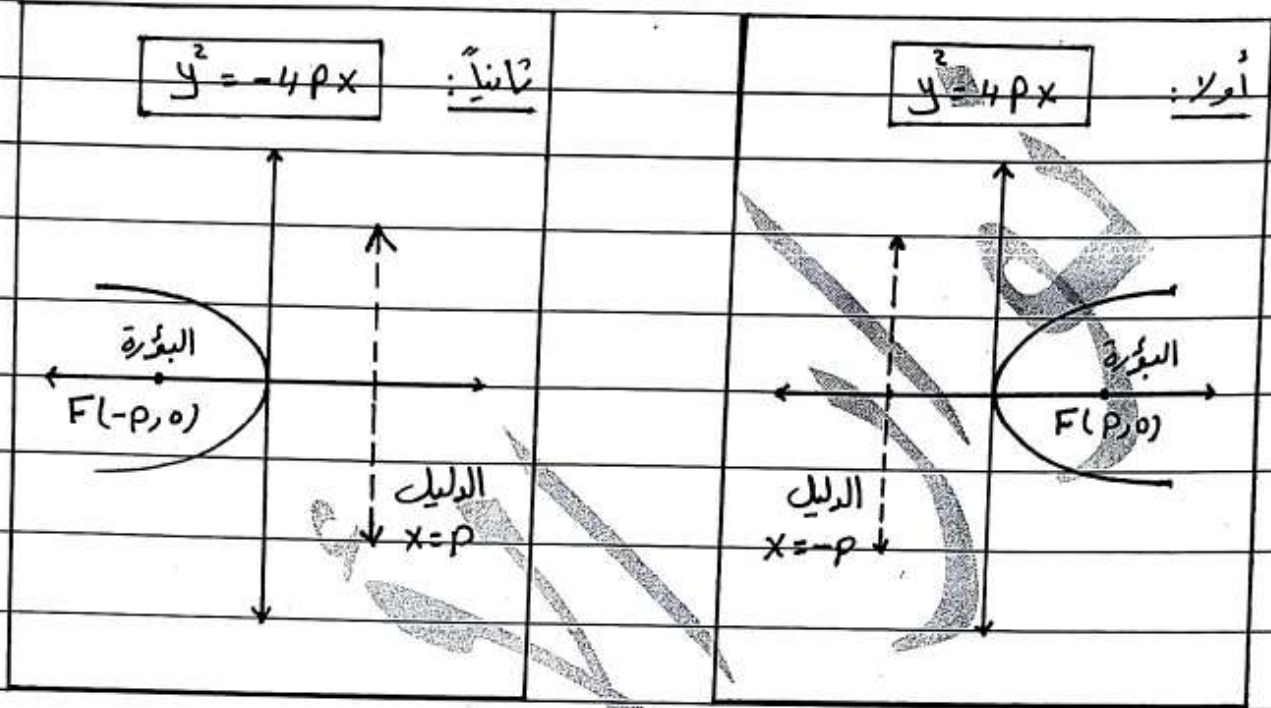 أولاً: y² = 4px
البؤرة
F(p,0)
الدليل
x=-p
ثانياً: y² = -4px
البؤرة
F(-p,0)
الدليل
x=p